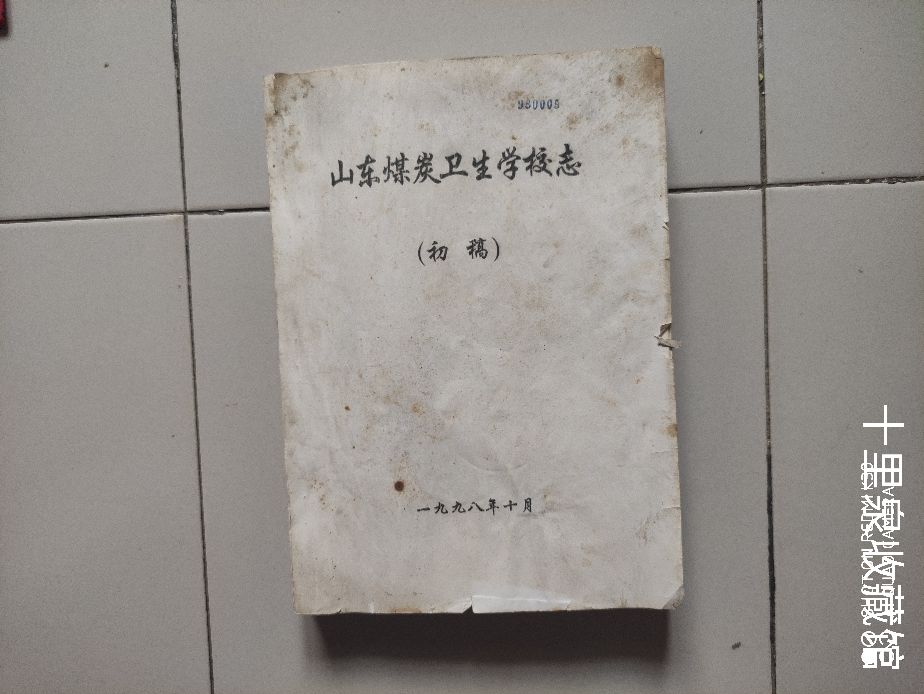 980009
山东煤炭卫生学校志
(初稿)
一九九八年十月
十里寨收藏馆